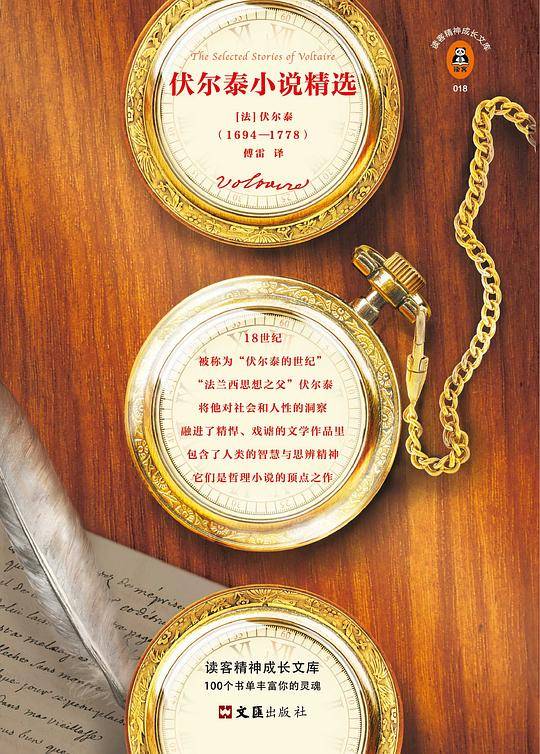 读客精神成长文库
读客
018
The Selected Stories of Voltaire
伏尔泰小说精选
[法] 伏尔泰
（1694—1778）
傅雷 译
Voltaire
18世纪
被称为“伏尔泰的世纪”
“法兰西思想之父”伏尔泰
将他对社会和人性的洞察
融进了精悍、戏谑的文学作品里
包含了人类的智慧与思辨精神
它们是哲理小说的顶点之作
读客精神成长文库
100个书单丰富你的灵魂
文匯出版社